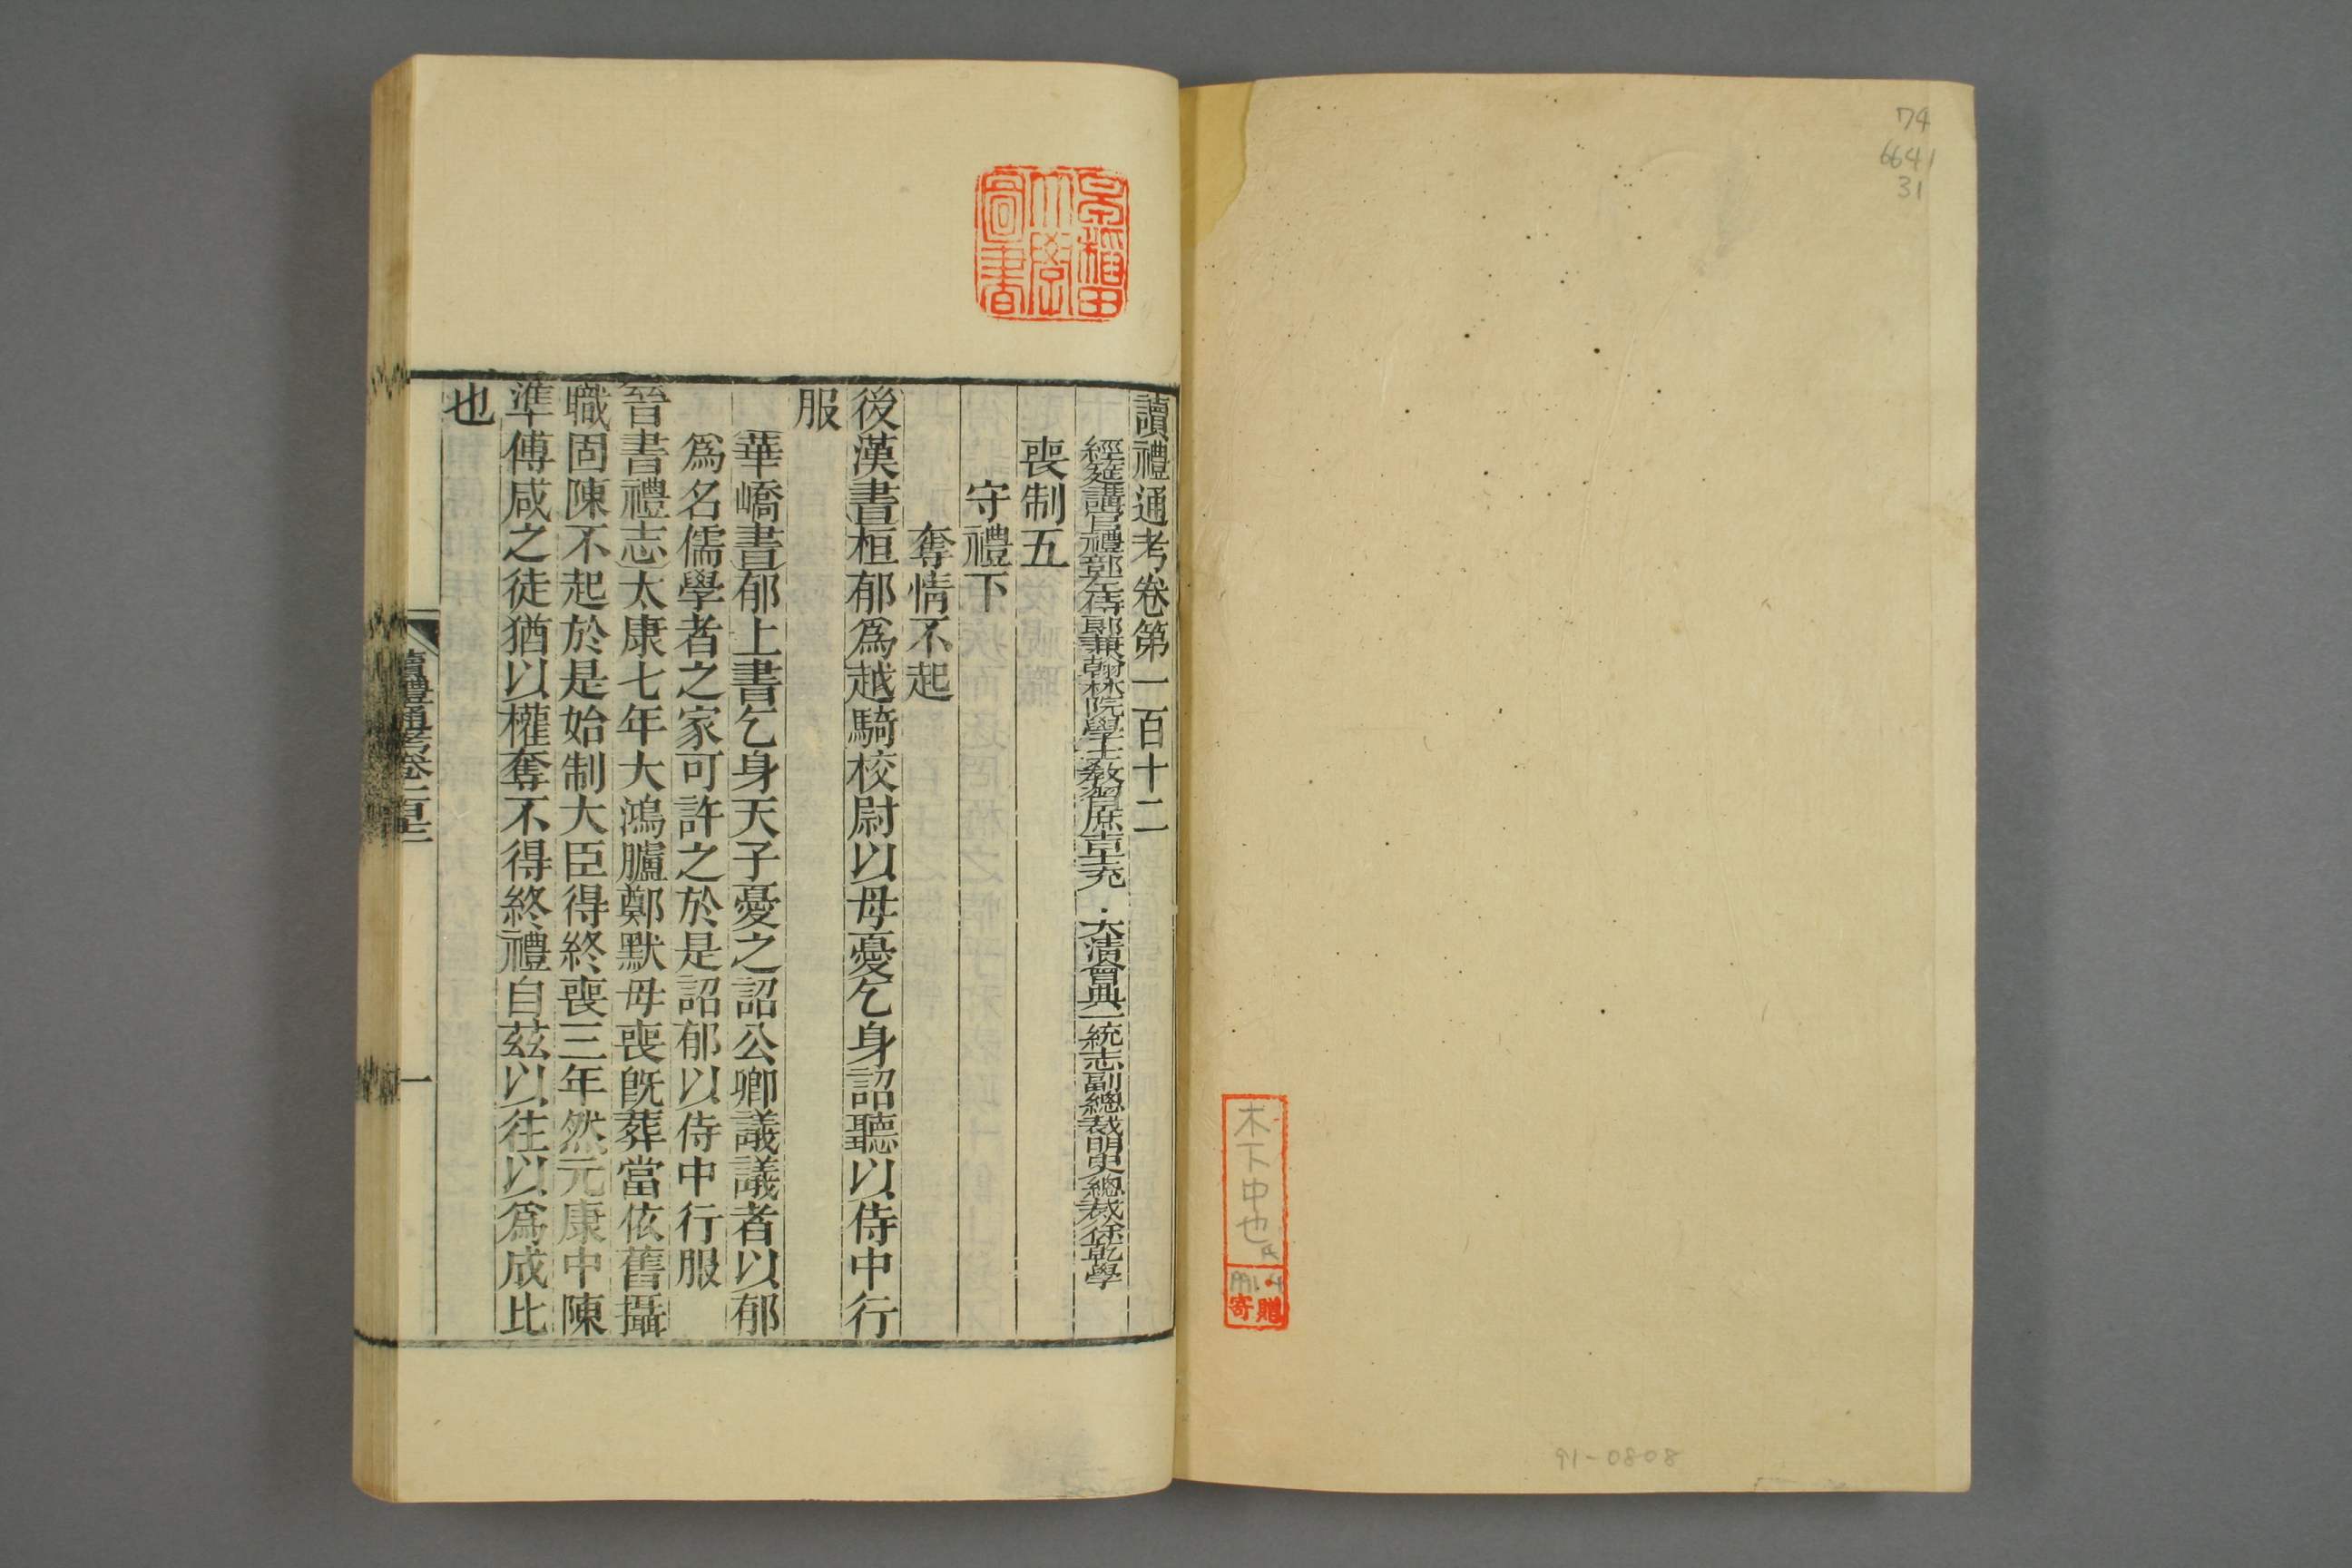 74
6641
31
木下中也氏
寄贈
91-0808
早稲田大學圖書
讀禮通考卷第一百十二
經筵講官禮部左侍郎兼翰林院學士教習庶吉士充大清會典一統志副總裁明史總裁徐乾學
喪制五
守禮下
奪情不起
後漢書桓郁爲越騎校尉以母憂乞身詔聽以侍中行
服
華嶠書郁上書乞身天子憂之詔公卿議議者以郁
爲名儒學者之家可許之於是詔郁以侍中行服
晉書禮志太康七年大鴻臚鄭默母喪旣葬當依舊攝
職固陳不起於是始制大臣得終喪三年然元康中陳
準傅咸之徒猶以權奪不得終禮自茲以往以爲成比
也
讀禮通考卷一百十二
一